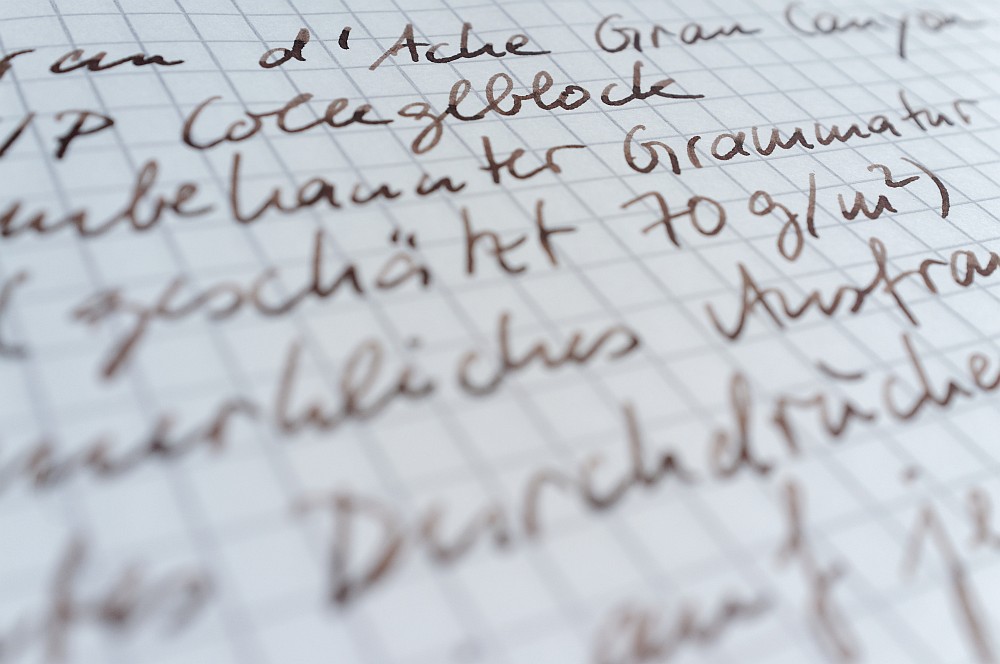 ran d'Ache Gran Canyon
/P Collegeblock
unbekannter Grammatur
(geschätzt 70 g/m²)
merkliches Ausfran
tes Durchdrücke
auf je